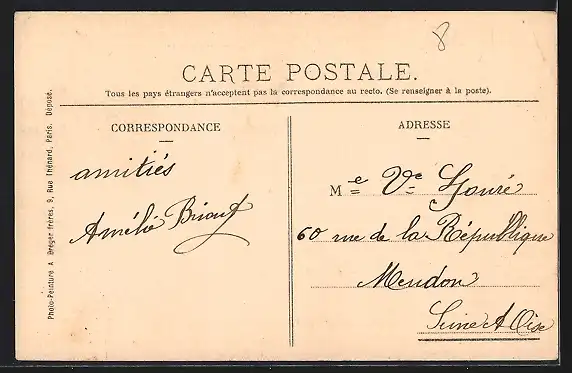 8
CARTE POSTALE.
Tous les pays étrangers n'acceptent pas la correspondance au recto. (Se renseigner à la poste).
CORRESPONDANCE
amitiés
Amélie
ADRESSE
Me Ve
60 rue de la République
Meudon
Seine et Oise
Photo-Peinture A Breger frères, 9, Rue Thénard, Paris. Déposé.